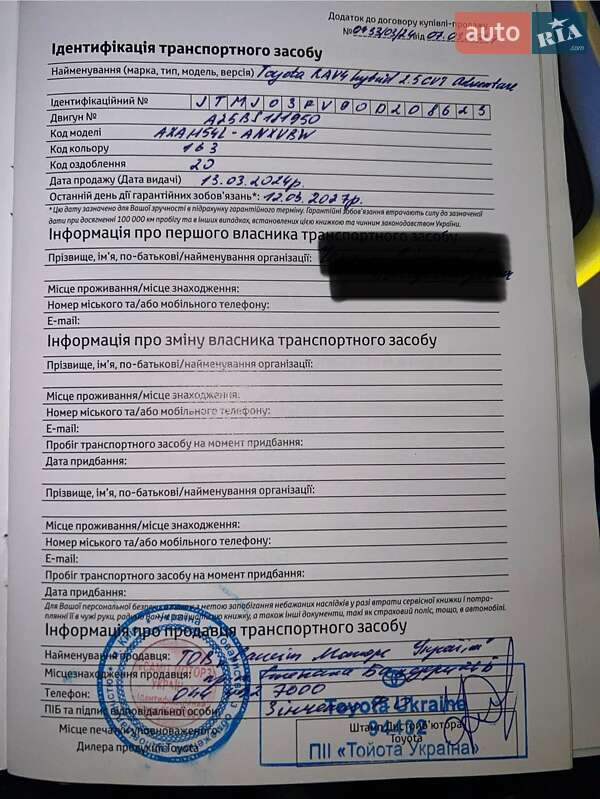 Додаток до договору купівлі-продажу
№0433/03/24 від 07.03
auto RIA.com
Ідентифікація транспортного засобу
Найменування (марка, тип, модель, версія) Toyota RAV4 hybrid 2.5 CVT Adventure
Ідентифікаційний № JTMJ03FV90D208623
Двигун № A25BS181950
Код моделі AXAH54L-ANXVBW
Код кольору 1G3
Код оздоблення 20
Дата продажу (Дата видачі) 13.03.2024р.
Останній день дії гарантійних зобов'язань*: 12.03.2027р.
* Цю дату зазначено для Вашої зручності в підрахунку гарантійного терміну. Гарантійні зобов'язання втрачають силу до зазначеної
дати при досягненні 100 000 км пробігу та в інших випадках, встановлених цією книжкою та чинним законодавством України.
Інформація про першого власника транспортного засобу
Прізвище, ім'я, по-батькові/найменування організації:
Місце проживання/місце знаходження:
Номер міського та/або мобільного телефону:
E-mail:
Інформація про зміну власника транспортного засобу
Прізвище, ім'я, по-батькові/найменування організації:
Місце проживання/місце знаходження:
Номер міського та/або мобільного телефону:
E-mail:
Пробіг транспортного засобу на момент придбання:
Дата придбання:
Прізвище, ім'я, по-батькові/найменування організації:
Місце проживання/місце знаходження:
Номер міського та/або мобільного телефону:
E-mail:
Пробіг транспортного засобу на момент придбання:
Дата придбання:
Для Вашої персональної безпеки, а також з метою запобігання небажаних наслідків у разі втрати сервісної книжки і потра-
плянні її у чужі руки, радимо Вам не залишати цю книжку, а також інші документи, такі як страховий поліс, тощо, в автомобілі.
Інформація про продавця транспортного засобу
Найменування продавця: ТОВ Моторс Україна"
Місцезнаходження продавця: Степана Бандери
Телефон: 044 7000
ПІБ та підпис відповідальної особи
Toyota Ukraine
94402
Місце печатки уповноваженого Штамп дистриб'ютора
Дилера продукції Toyota Toyota
ПІІ «Тойота Україна»